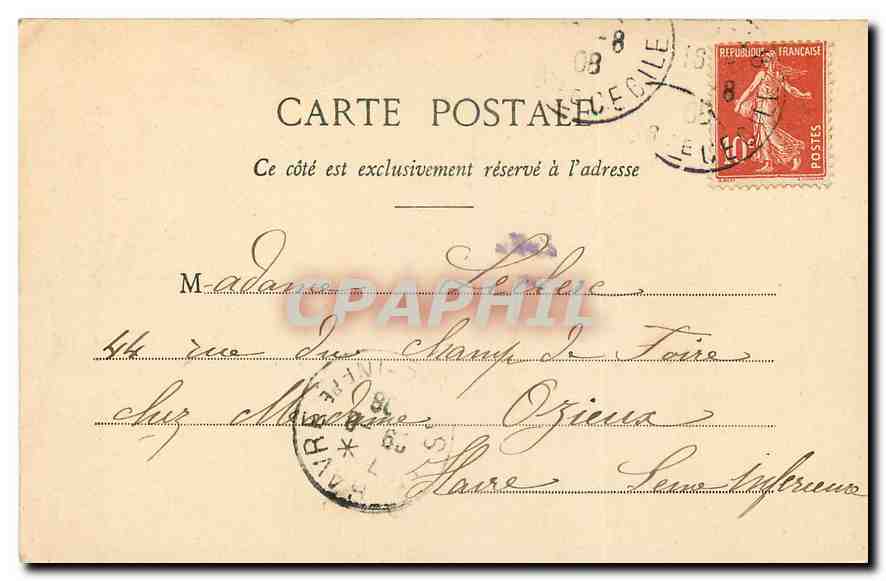 RÉPUBLIQUE FRANÇAISE
10c
POSTES
-8
08
CECILE
18
8
CARTE POSTALE
Ce côté est exclusivement réservé à l'adresse
Madame Leclerc
CPAPHIL
44 rue du Champ de Foire
chez Madame Ozieux
Havre Seine Inférieure
HAVRE
08